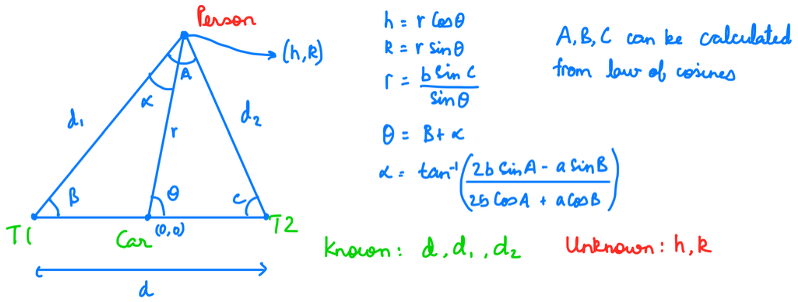 Person
(h,k)
A
α
d₁
d₂
r
B
θ
C
T1
Car
(0,0)
T2
d
h = r cosθ
k = r sinθ
r = b sin C / sinθ
θ = B + α
α = tan⁻¹((2b sinA - a sinB) / (2b cosA + a cosB))
A,B,C can be calculated
from law of cosines
Known: d, d₁, d₂
Unknown: h,k